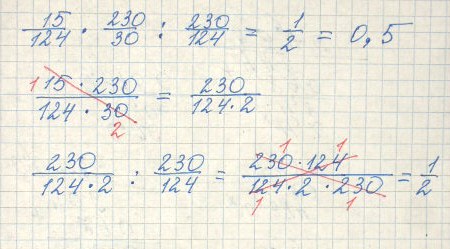 15/124 · 230/30 : 230/124 = 1/2 = 0,5
1 15 · 230 / 124 · 30 2 = 230 / 124 · 2
230 / 124 · 2 : 230/124 = 1 1 230 · 124 / 124 · 2 · 230 1 1 = 1/2